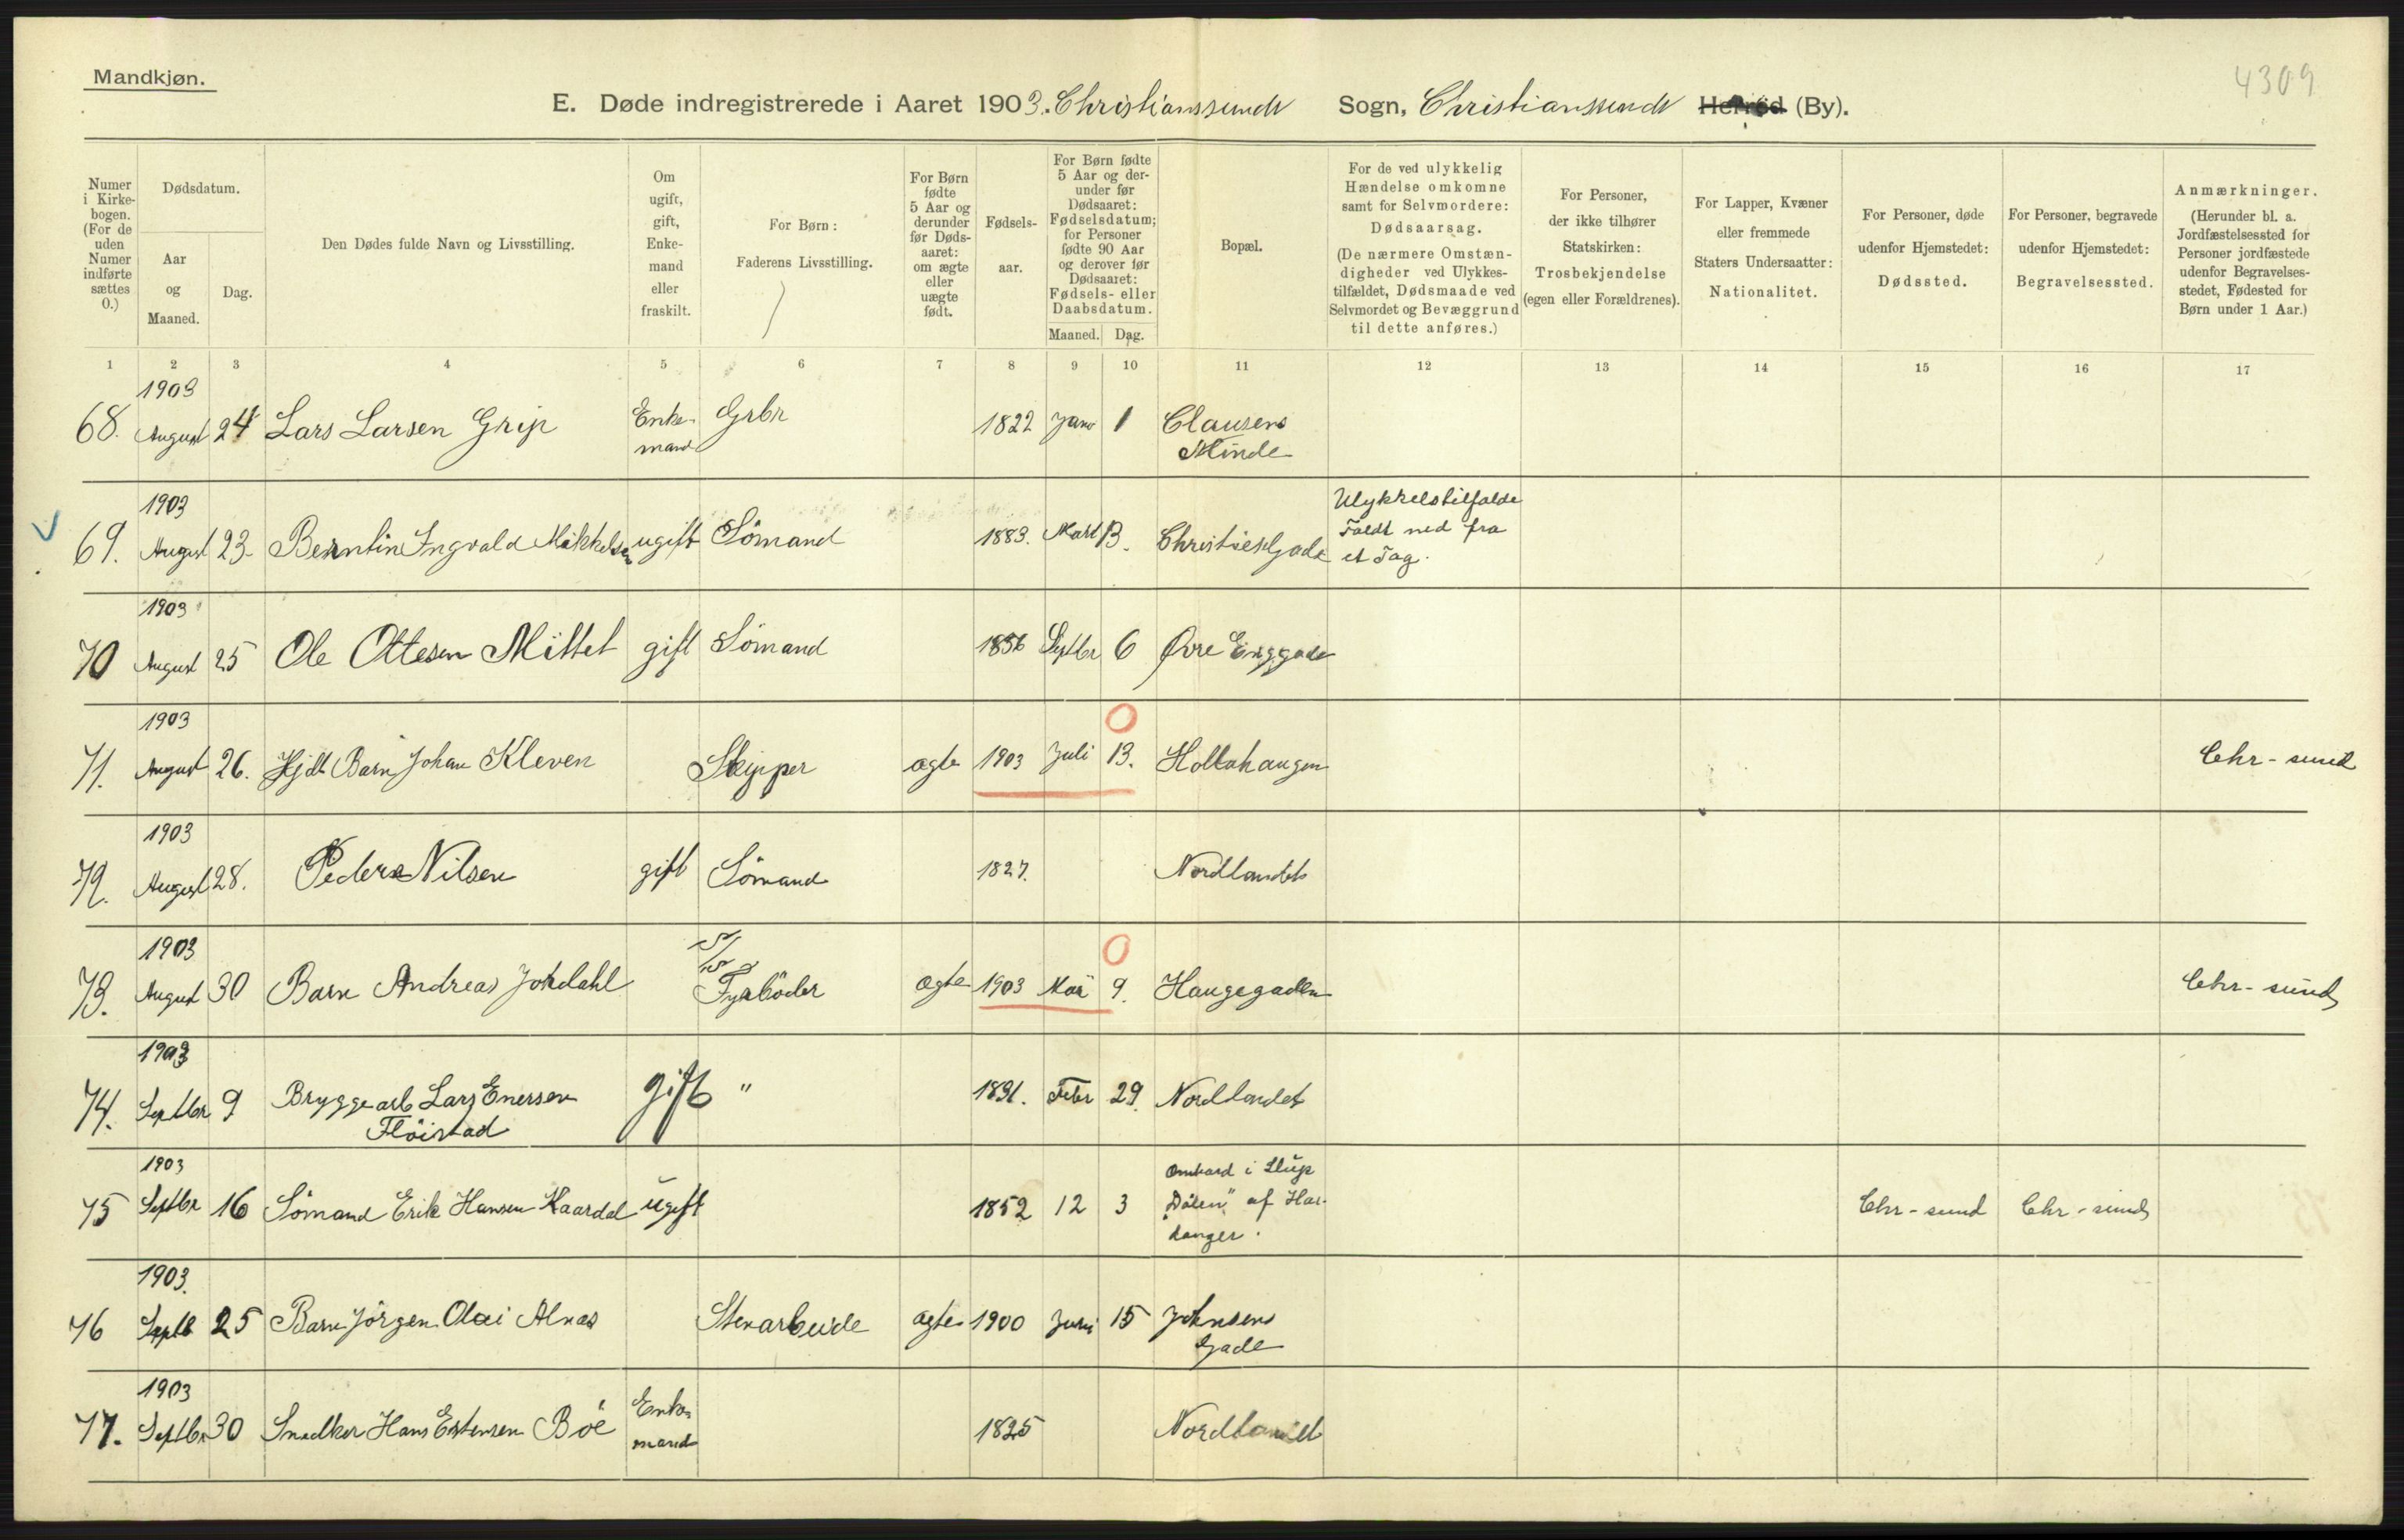 Mandkjøn.
4309
E. Døde indregistrerede i Aaret 1903. Christianssunds Sogn, Christianssunds Herred (By).
Numer i Kirkebogen. (For de uden Numer indførte sættes 0.)
Dødsdatum.
Aar og Maaned.
Dag.
Den Dødes fulde Navn og Livsstilling.
Om ugift, gift, Enkemand eller fraskilt.
For Børn: Faderens Livsstilling.
For Børn fødte 5 Aar og derunder før Dødsaaret: om ægte eller uægte født.
Fødselsaar.
For Børn fødte 5 Aar og derunder før Dødsaaret: Fødselsdatum; for Personer fødte 90 Aar og derover før Dødsaaret: Fødsels- eller Daabsdatum.
Maaned. Dag.
Bopæl.
For de ved ulykkelig Hændelse omkomne samt for Selvmordere: Dødsaarsag. (De nærmere Omstændigheder ved Ulykkestilfældet, Dødsmaade ved Selvmordet og Bevæggrund til dette anføres.)
For Personer, der ikke tilhører Statskirken: Trosbekjendelse (egen eller Forældrenes).
For Lapper, Kvæner eller fremmede Staters Undersaatter: Nationalitet.
For Personer, døde udenfor Hjemstedet: Dødssted.
For Personer, begravede udenfor Hjemstedet: Begravelsessted.
Anmærkninger. (Herunder bl. a. Jordfæstelsessted for Personer jordfæstede udenfor Begravelsesstedet, Fødested for Børn under 1 Aar.)
1 2 3 4 5 6 7 8 9 10 11 12 13 14 15 16 17
1903
68. August 24 Lars Larsen Grip Enkemand Grbr 1822 Janr 1 Clausens Minde
1903
69. August 23. Berntin Ingvald Mikkelsen ugift Sömand 1883. Mart 13. Christies Gade Ulykkelstilfælde Faldt ned fra et Tag.
1903
70 August 25 Ole Ottesen Mittet gift Sömand 1856 Septbr 6 Øvre Enggade
1903
71. August 26. Hjdt Barn Johan Kleven Skipper ægte 1903 Juli 13. Hollahaugen Chr-sund
1903
72. August 28. Peder Nilsen gift Sömand 1827. Nordlandet
1903
73. August 30 Barn Andreas Jordahl Fyrböder ægte 1903 Mai 9. Haugegaden Chr-sund
1903
74. Septbr 9 Bryggearb Lars Enersen Flöistad gift " 1831. Febr 29. Nordlandet
1903
75 Septbr 16 Sömand Erik Hansen Kaardal ugift 1852 12 3 Ombord i Slup "Dölen" af Hardanger. Chr-sund Chr-sund
1903.
76 Septb 25 Barn Jörgen Olai Alnæs Stenarbeide ægte 1900 Juni 15 Johnsens Gade
1903
77. Septbr 30 Snedker Hans Estensen Böe Enkemand 1825 Nordlandet